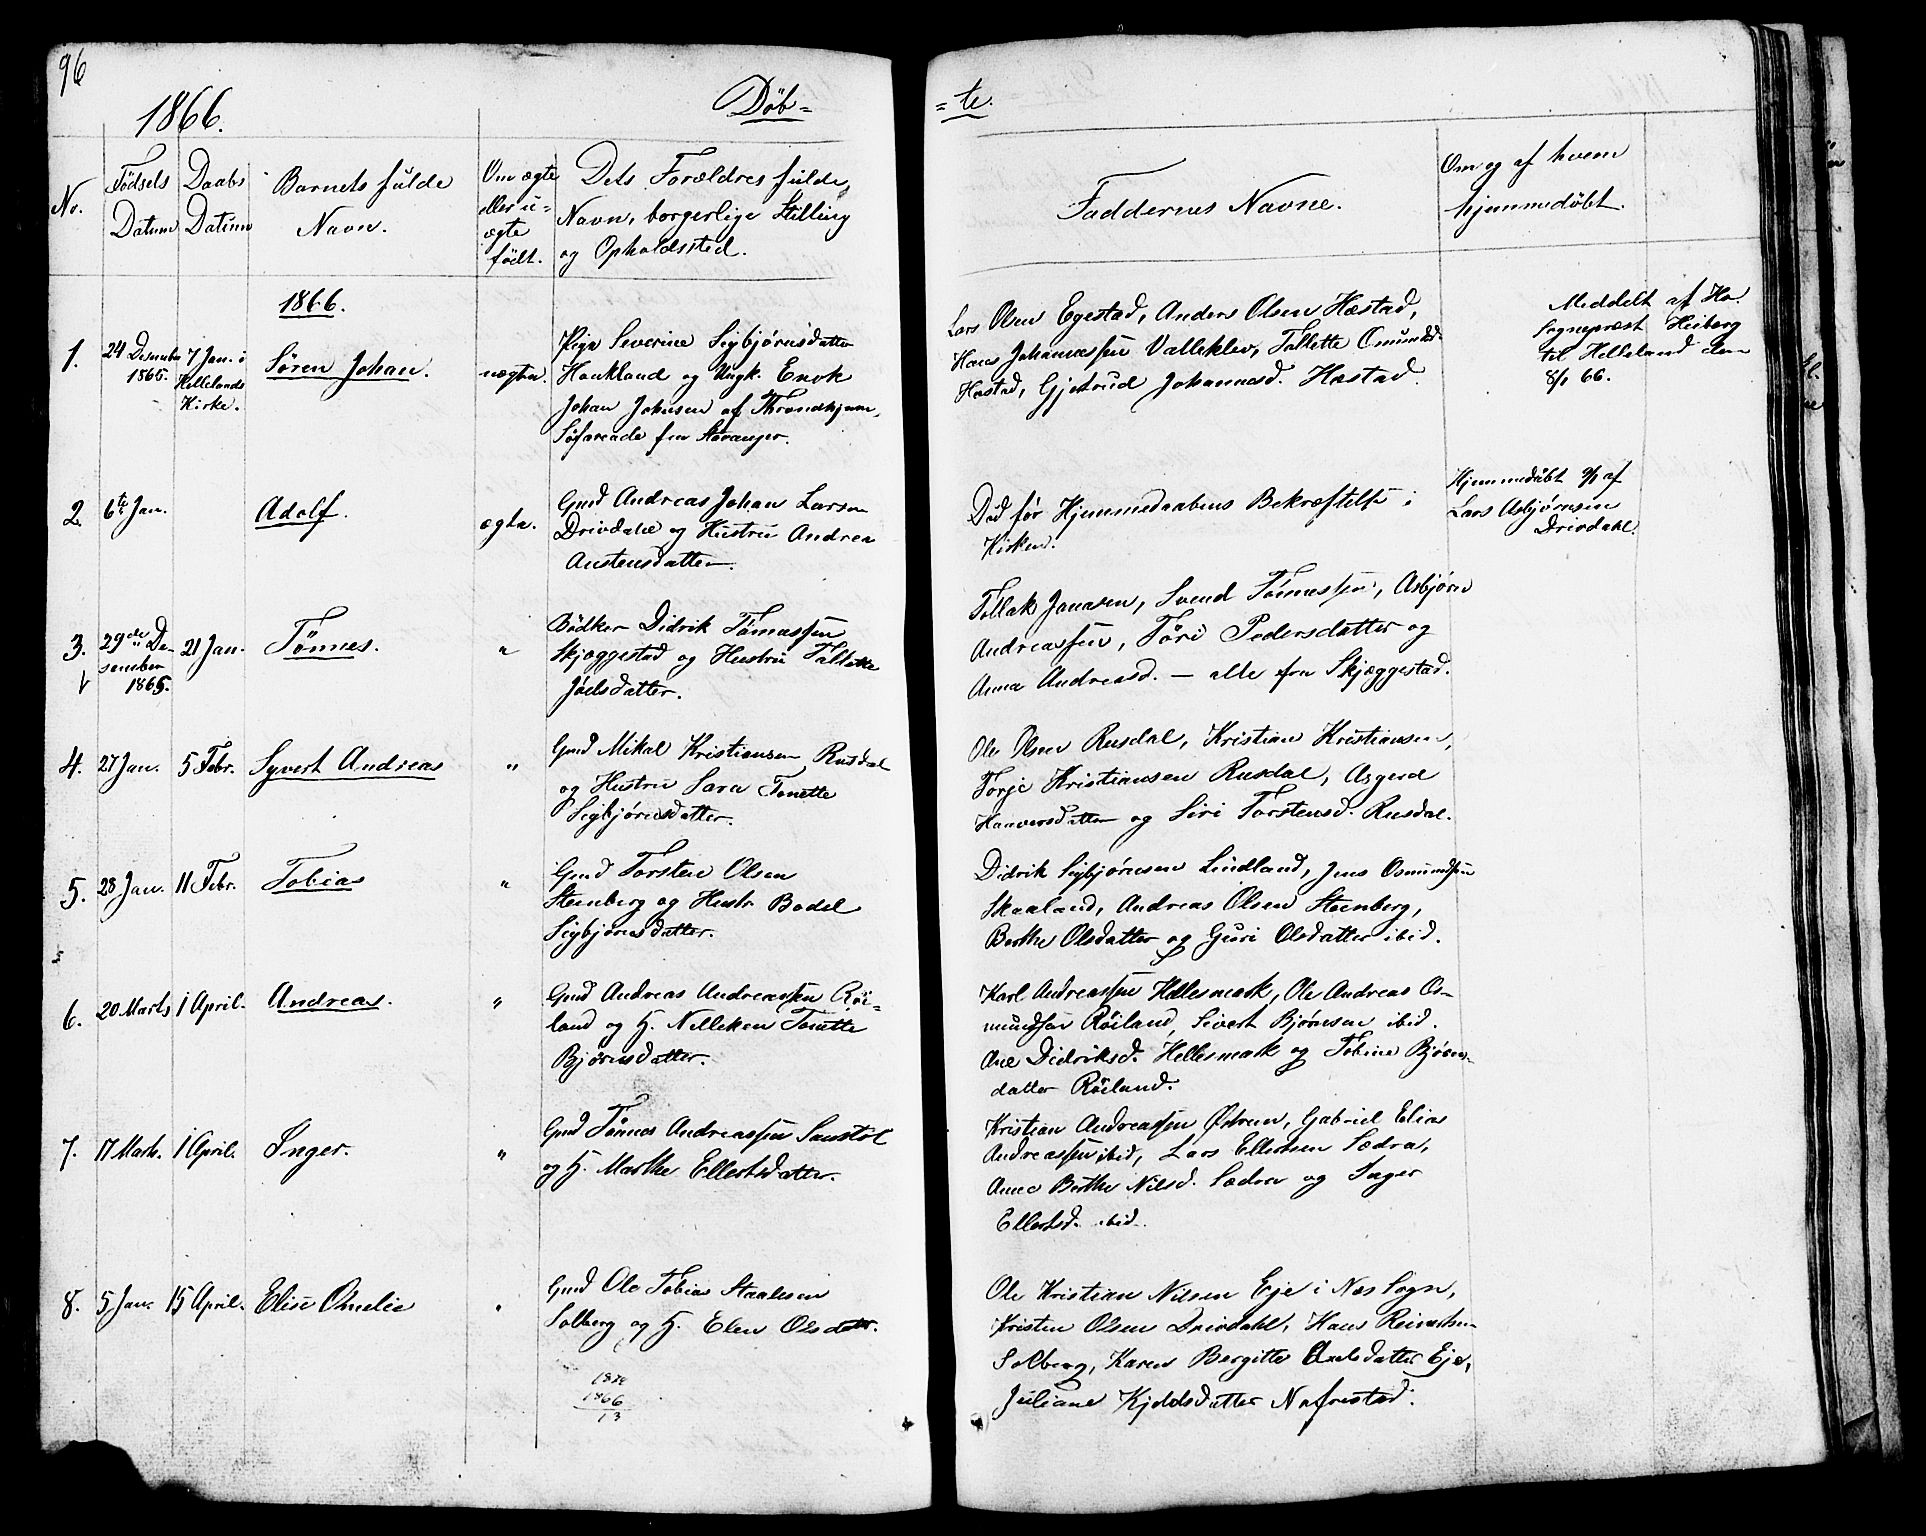 96
1866.
Døb=
=te.
No.
Fødsels
Datum
Daabs
Datum
Barnets fulde
Navn.
Om ægte
eller u=
ægte
født.
Dets Forældres fulde
Navn, borgerlige Stilling
og Opholdssted.
Faddernes Navne.
Om og af hvem
hjemmedøbt.
1866.
1.
24 Desember
1865.
7 Jan. i
Hellelands
Kirke.
Søren Johan.
uægte.
Pige Severine Sigbjørnsdatter
Haukland og Ungk. Enok
Johan Johnsen af Throndhjem,
Søfarende fra Stavanger.
Lars Olsen Egestad, Anders Olsen Hæstad,
Hans Johannessen Valleklev, Tallette Omundsd.
Hæstad, Gjetrud Johannesd. Hæstad.
Meddelt af Hr.
Sognepræst Heiberg
til Helleland den
8/1 66.
2.
6te Jan.
Adolf.
ægte.
Gmd Andreas Johan Larsen
Drivdahl og Hustru Andrea
Austensdatter.
Død før Hjemmedaabens Bekræftelse i
Kirken.
Hjemmedøbt 9/1 af
Lars Asbjørnsen
Drivdahl.
3.
29de De-
sember
1865.
21 Jan.
Tønnes.
"
Bødker Didrik Tømassen
Skjæggestad og Hustru Tallette
Joelsdatter.
Tollak Jonasen, Svend Tönnessen, Asbjørn
Andreassen, Töri Pedersdatter og
Anna Andreasd. — alle fra Skjæggestad.
4.
27 Jan.
5 Febr.
Syvert Andreas
"
Gmd Mikal Kristiansen Rusdal
og Hustru Sara Tonette
Sigbjørnsdatter.
Ole Olsen Rusdal, Kristian Kristiansen,
Torje Kristiansen Rusdal, Asgerd
Haaversdatter og Siri Torstensd. Rusdal.
5.
28 Jan.
11 Febr.
Tobias
"
Gmd Torsten Olsen
Stenberg og Hustr. Bodel
Sigbjørnsdatter.
Didrik Sigbjørnsen Lindland, Jens Osmundsen
Skaaland, Andreas Olsen Stenberg,
Berthe Olsdatter og Guri Olsdatter ibid.
6.
20 Marts
1 April.
Andreas.
"
Gmd Andreas Andreassen Röi-
land og H. Nilleken Tonette
Bjørnsdatter.
Karl Andreassen Hellesmark, Ole Andreas Os-
mundsen Röiland, Sivert Bjørnsen ibid.
Ane Didriksd. Hellesmark og Tobine Bjørns-
datter Röiland.
7.
17 Marts.
1 April.
Inger.
"
Gmd Tönnes Andreassen Saustöl
og H. Marthe Ellertsdatter.
Kristian Andreassen Østrem, Gabriel Elias
Andreassen ibid, Lars Ellertsen Sædra,
Anne Berthe Nilsd. Sædra og Inger
Ellertsd. ibid.
8.
5 Jan.
15 April.
Elise Omelie
"
Gmd Ole Tobias Staalesen
Solberg og H. Elen Olsdatr.
Ole Kristian Nilsen Eje i Næs Sogn,
Kristen Olsen Drivdahl, Hans Reinertsen
Solberg, Karen Bergitte Axelsdatter Eje,
Juliane Kjeldsdatter Nafrestad.
1866
13